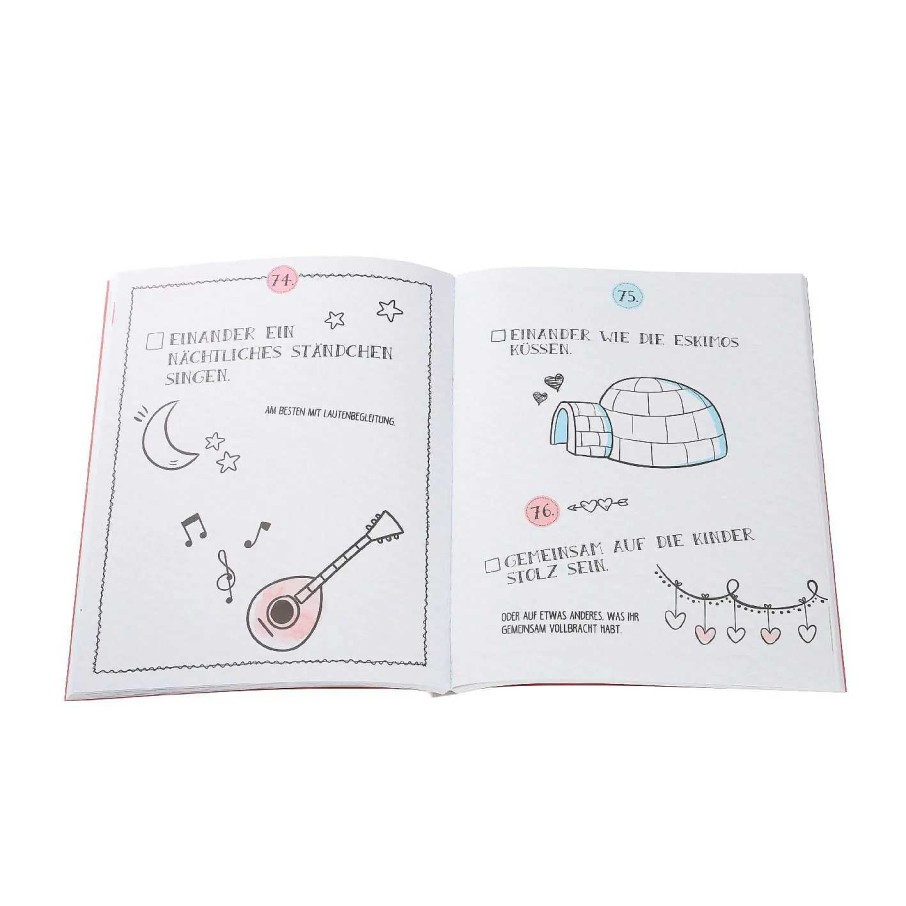 74.
EINANDER EIN
NÄCHTLICHES STÄNDCHEN
SINGEN.
AM BESTEN MIT LAUTENBEGLEITUNG.
75.
EINANDER WIE DIE ESKIMOS
KÜSSEN.
76.
GEMEINSAM AUF DIE KINDER
STOLZ SEIN.
ODER AUF ETWAS ANDERES, WAS IHR
GEMEINSAM VOLLBRACHT HABT.